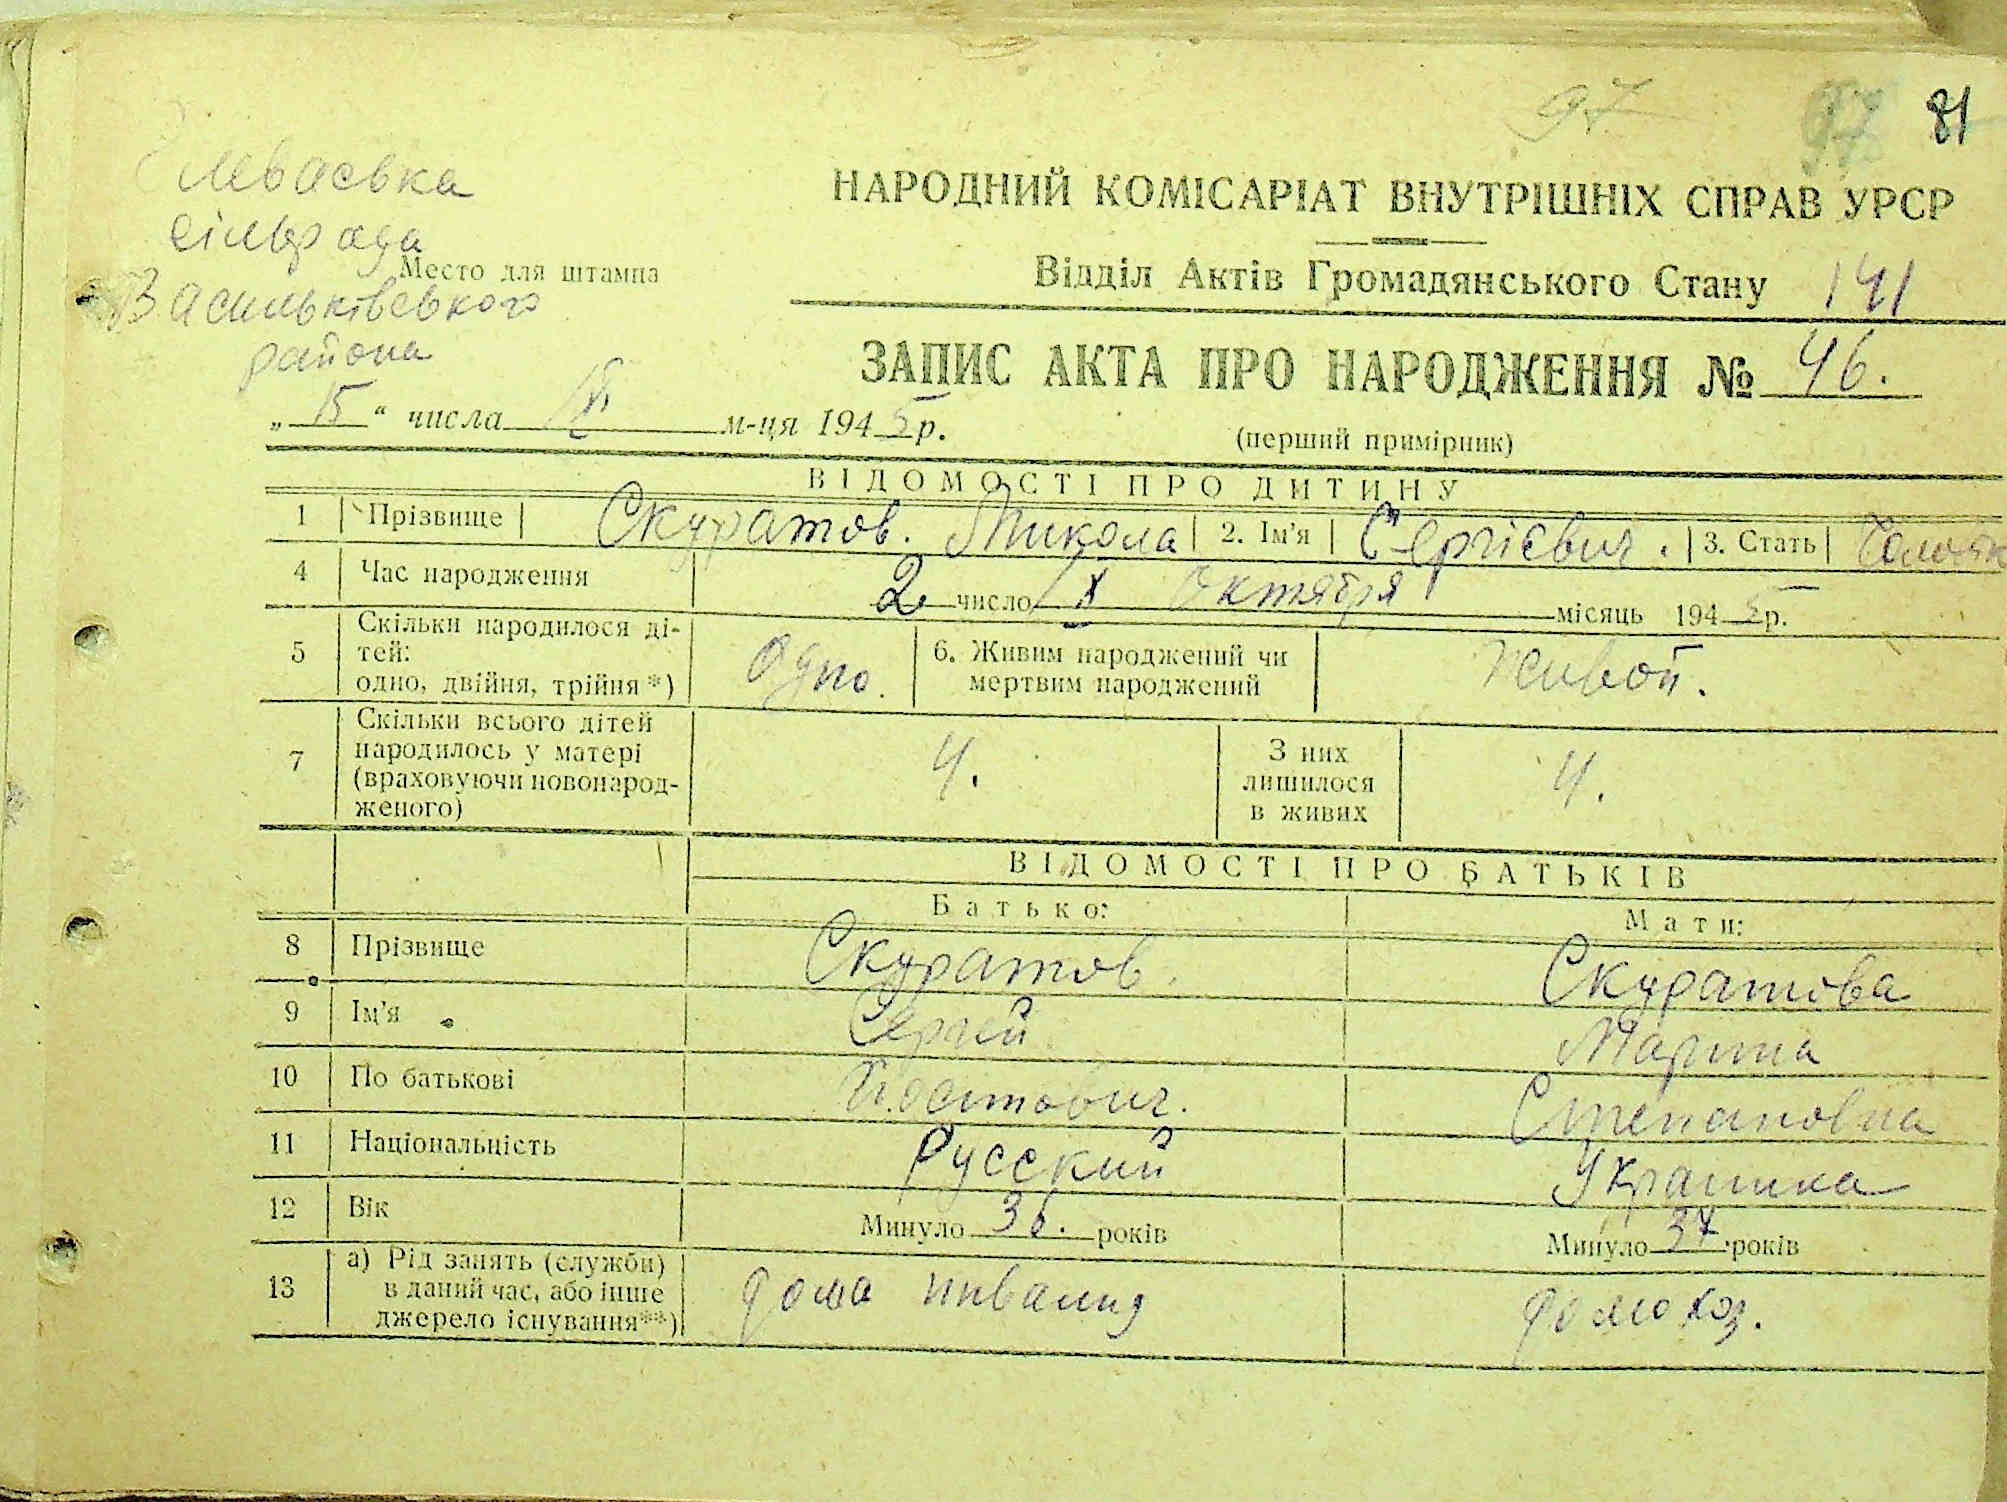 97 97 81
сільрада
Васильківського
района
Место для штампа
НАРОДНИЙ КОМІСАРІАТ ВНУТРІШНІХ СПРАВ УРСР
Відділ Актів Громадянського Стану 141
ЗАПИС АКТА ПРО НАРОДЖЕННЯ № 46.
„15“ числа м-ця 1945 р.
(перший примірник)
ВІДОМОСТІ ПРО ДИТИНУ
1 Прізвище Скуратов. Микола 2. Ім'я Сергієвич. 3. Стать
4 Час народження 2 число X Октября місяць 1945 р.
5 Скільки народилося ді-
тей:
одно, двійня, трійня*) Одно. 6. Живим народжений чи
мертвим народжений Живой.
7 Скільки всього дітей
народилось у матері
(враховуючи новонарод-
женого) 4. З них
лишилося
в живих 4.
ВІДОМОСТІ ПРО БАТЬКІВ
Батько: Мати:
8 Прізвище Скуратов Скуратова
9 Ім'я Сергей
10 По батькові Степановна
11 Національність Русский Украинка
12 Вік Минуло 36. років Минуло 37 років
13 а) Рід занять (служби)
в даний час, або інше
джерело існування**) дома инвалид домохоз.